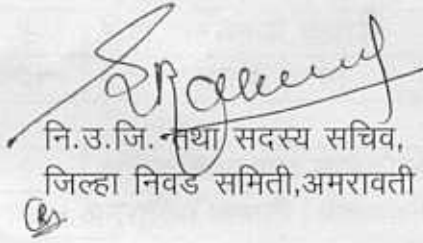 नि.उ.जि. तथा सदस्य सचिव,
जिल्हा निवड समिती,अमरावती